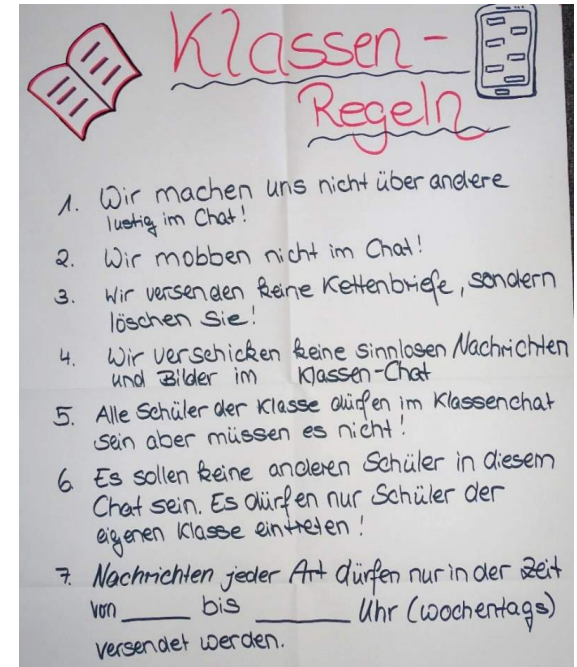 Klassen-
Regeln
1. Wir machen uns nicht über andere
lustig im Chat!
2. Wir mobben nicht im Chat!
3. Wir versenden keine Kettenbriefe, sondern
löschen Sie!
4. Wir verschicken keine sinnlosen Nachrichten
und Bilder im Klassen-Chat
5. Alle Schüler der Klasse dürfen im Klassenchat
sein aber müssen es nicht!
6. Es sollen keine anderen Schüler in diesem
Chat sein. Es dürfen nur Schüler der
eigenen Klasse eintreten!
7. Nachrichten jeder Art dürfen nur in der Zeit
von _____ bis _______ Uhr (wochentags)
versendet werden.